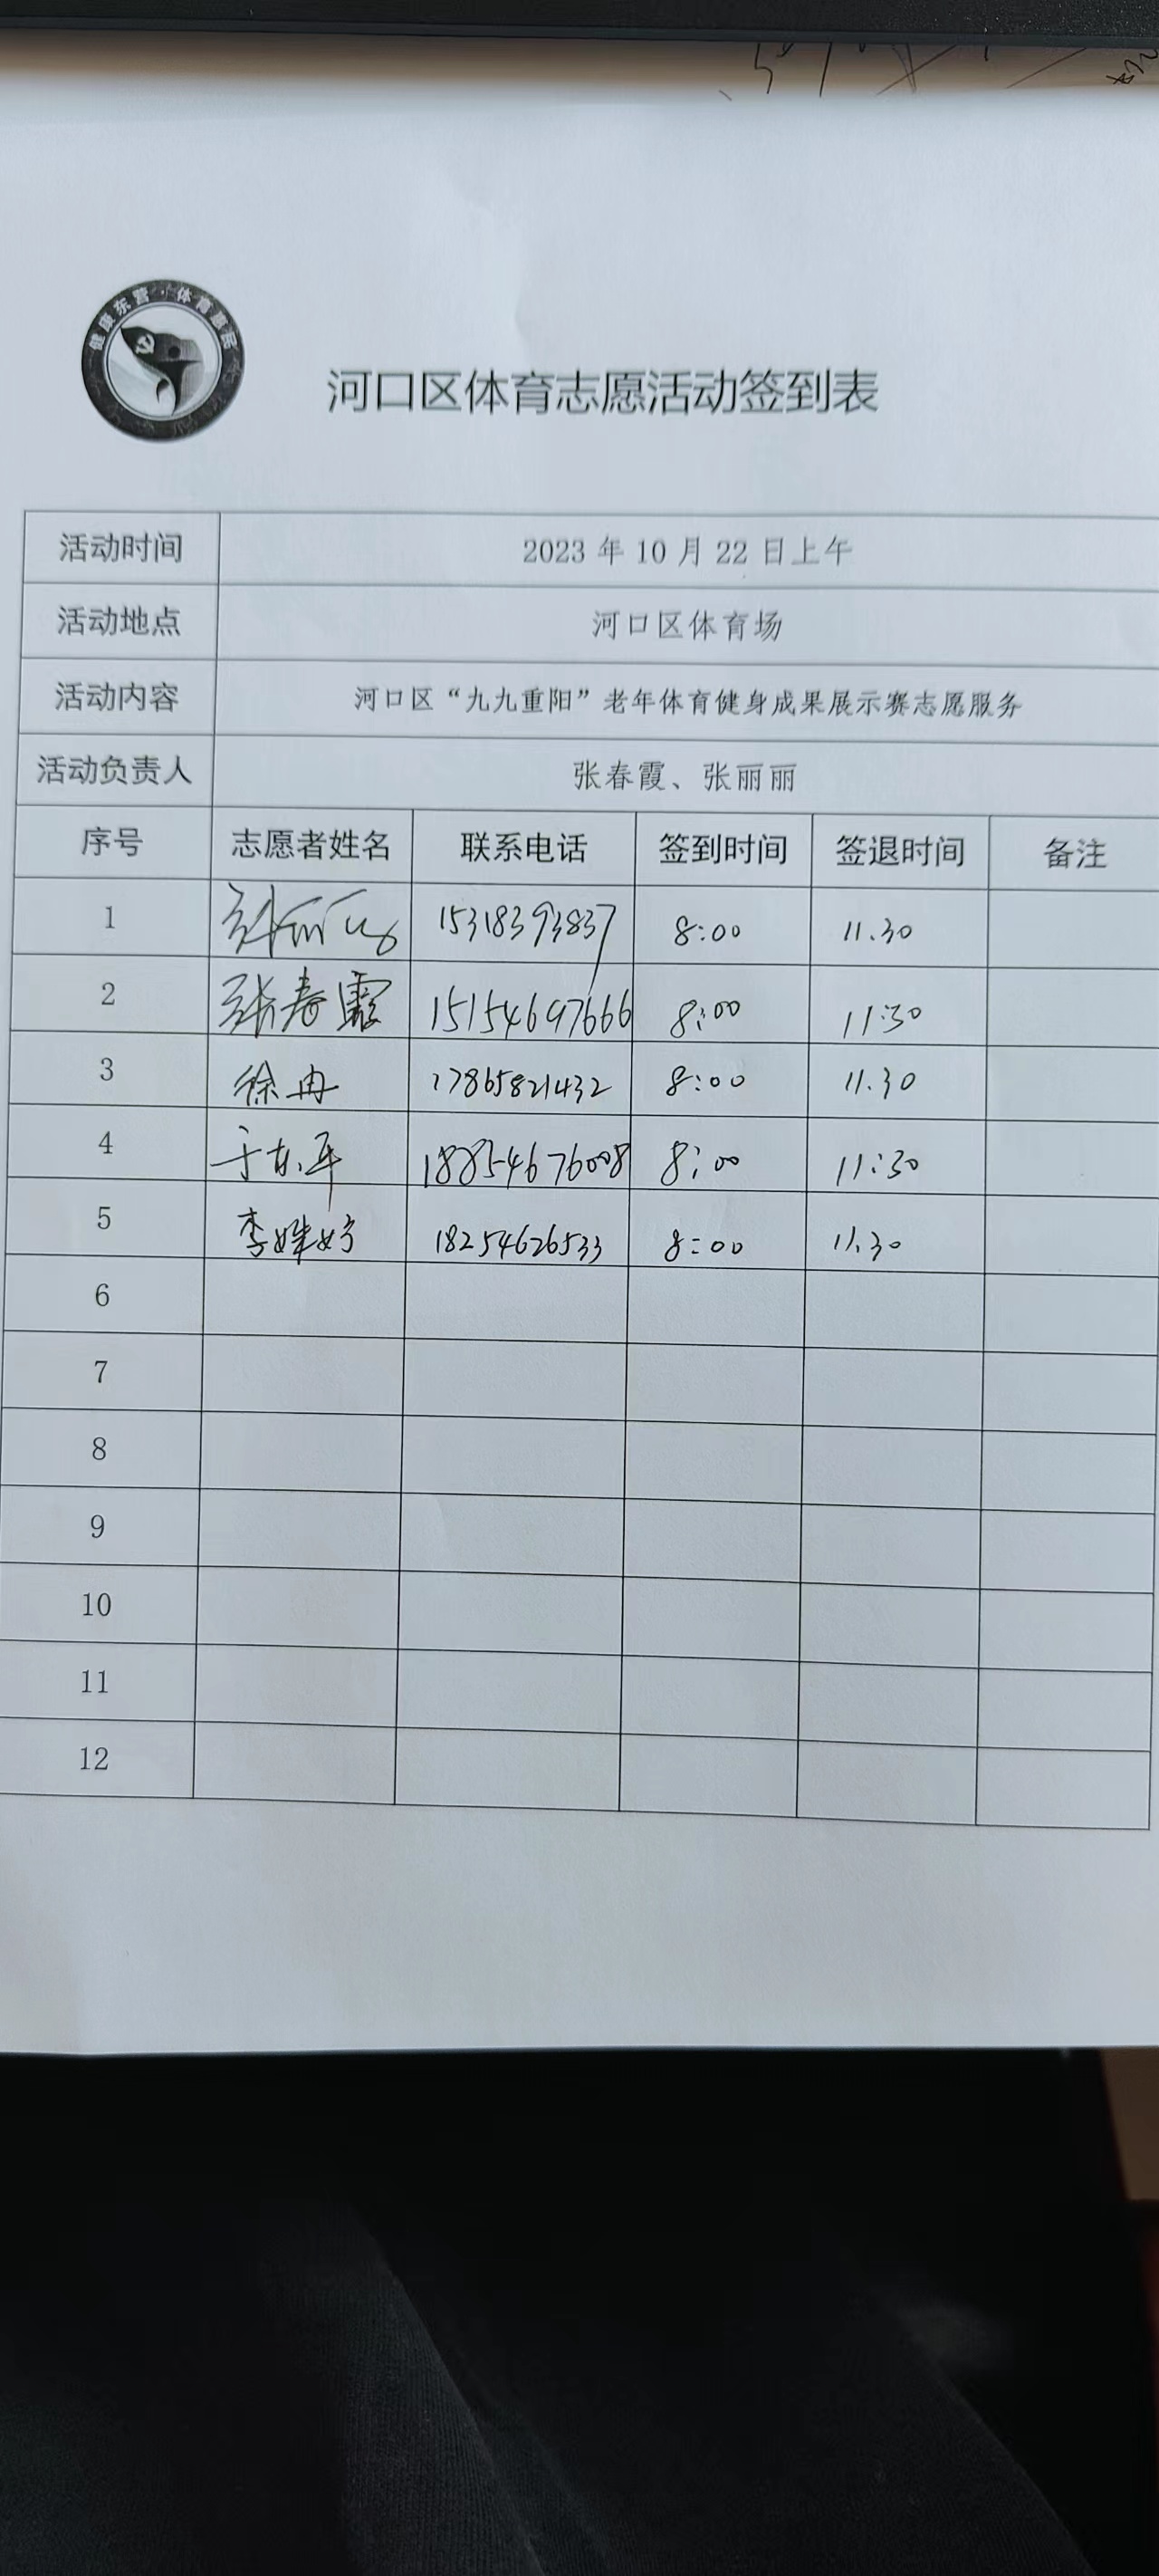 健康东营·体育惠民
河口区体育志愿活动签到表
活动时间 2023 年 10 月 22 日上午
活动地点 河口区体育场
活动内容 河口区“九九重阳”老年体育健身成果展示赛志愿服务
活动负责人 张春霞、张丽丽
序号 志愿者姓名 联系电话 签到时间 签退时间 备注
1 张丽丽 15318393837 8:00 11.30
2 张春霞 15154697666 8:00 11:30
3 徐冉 17865821432 8:00 11.30
4 于东军 18854676008 8:00 11:30
5 李姝妤 18254626533 8:00 11.30
6
7
8
9
10
11
12